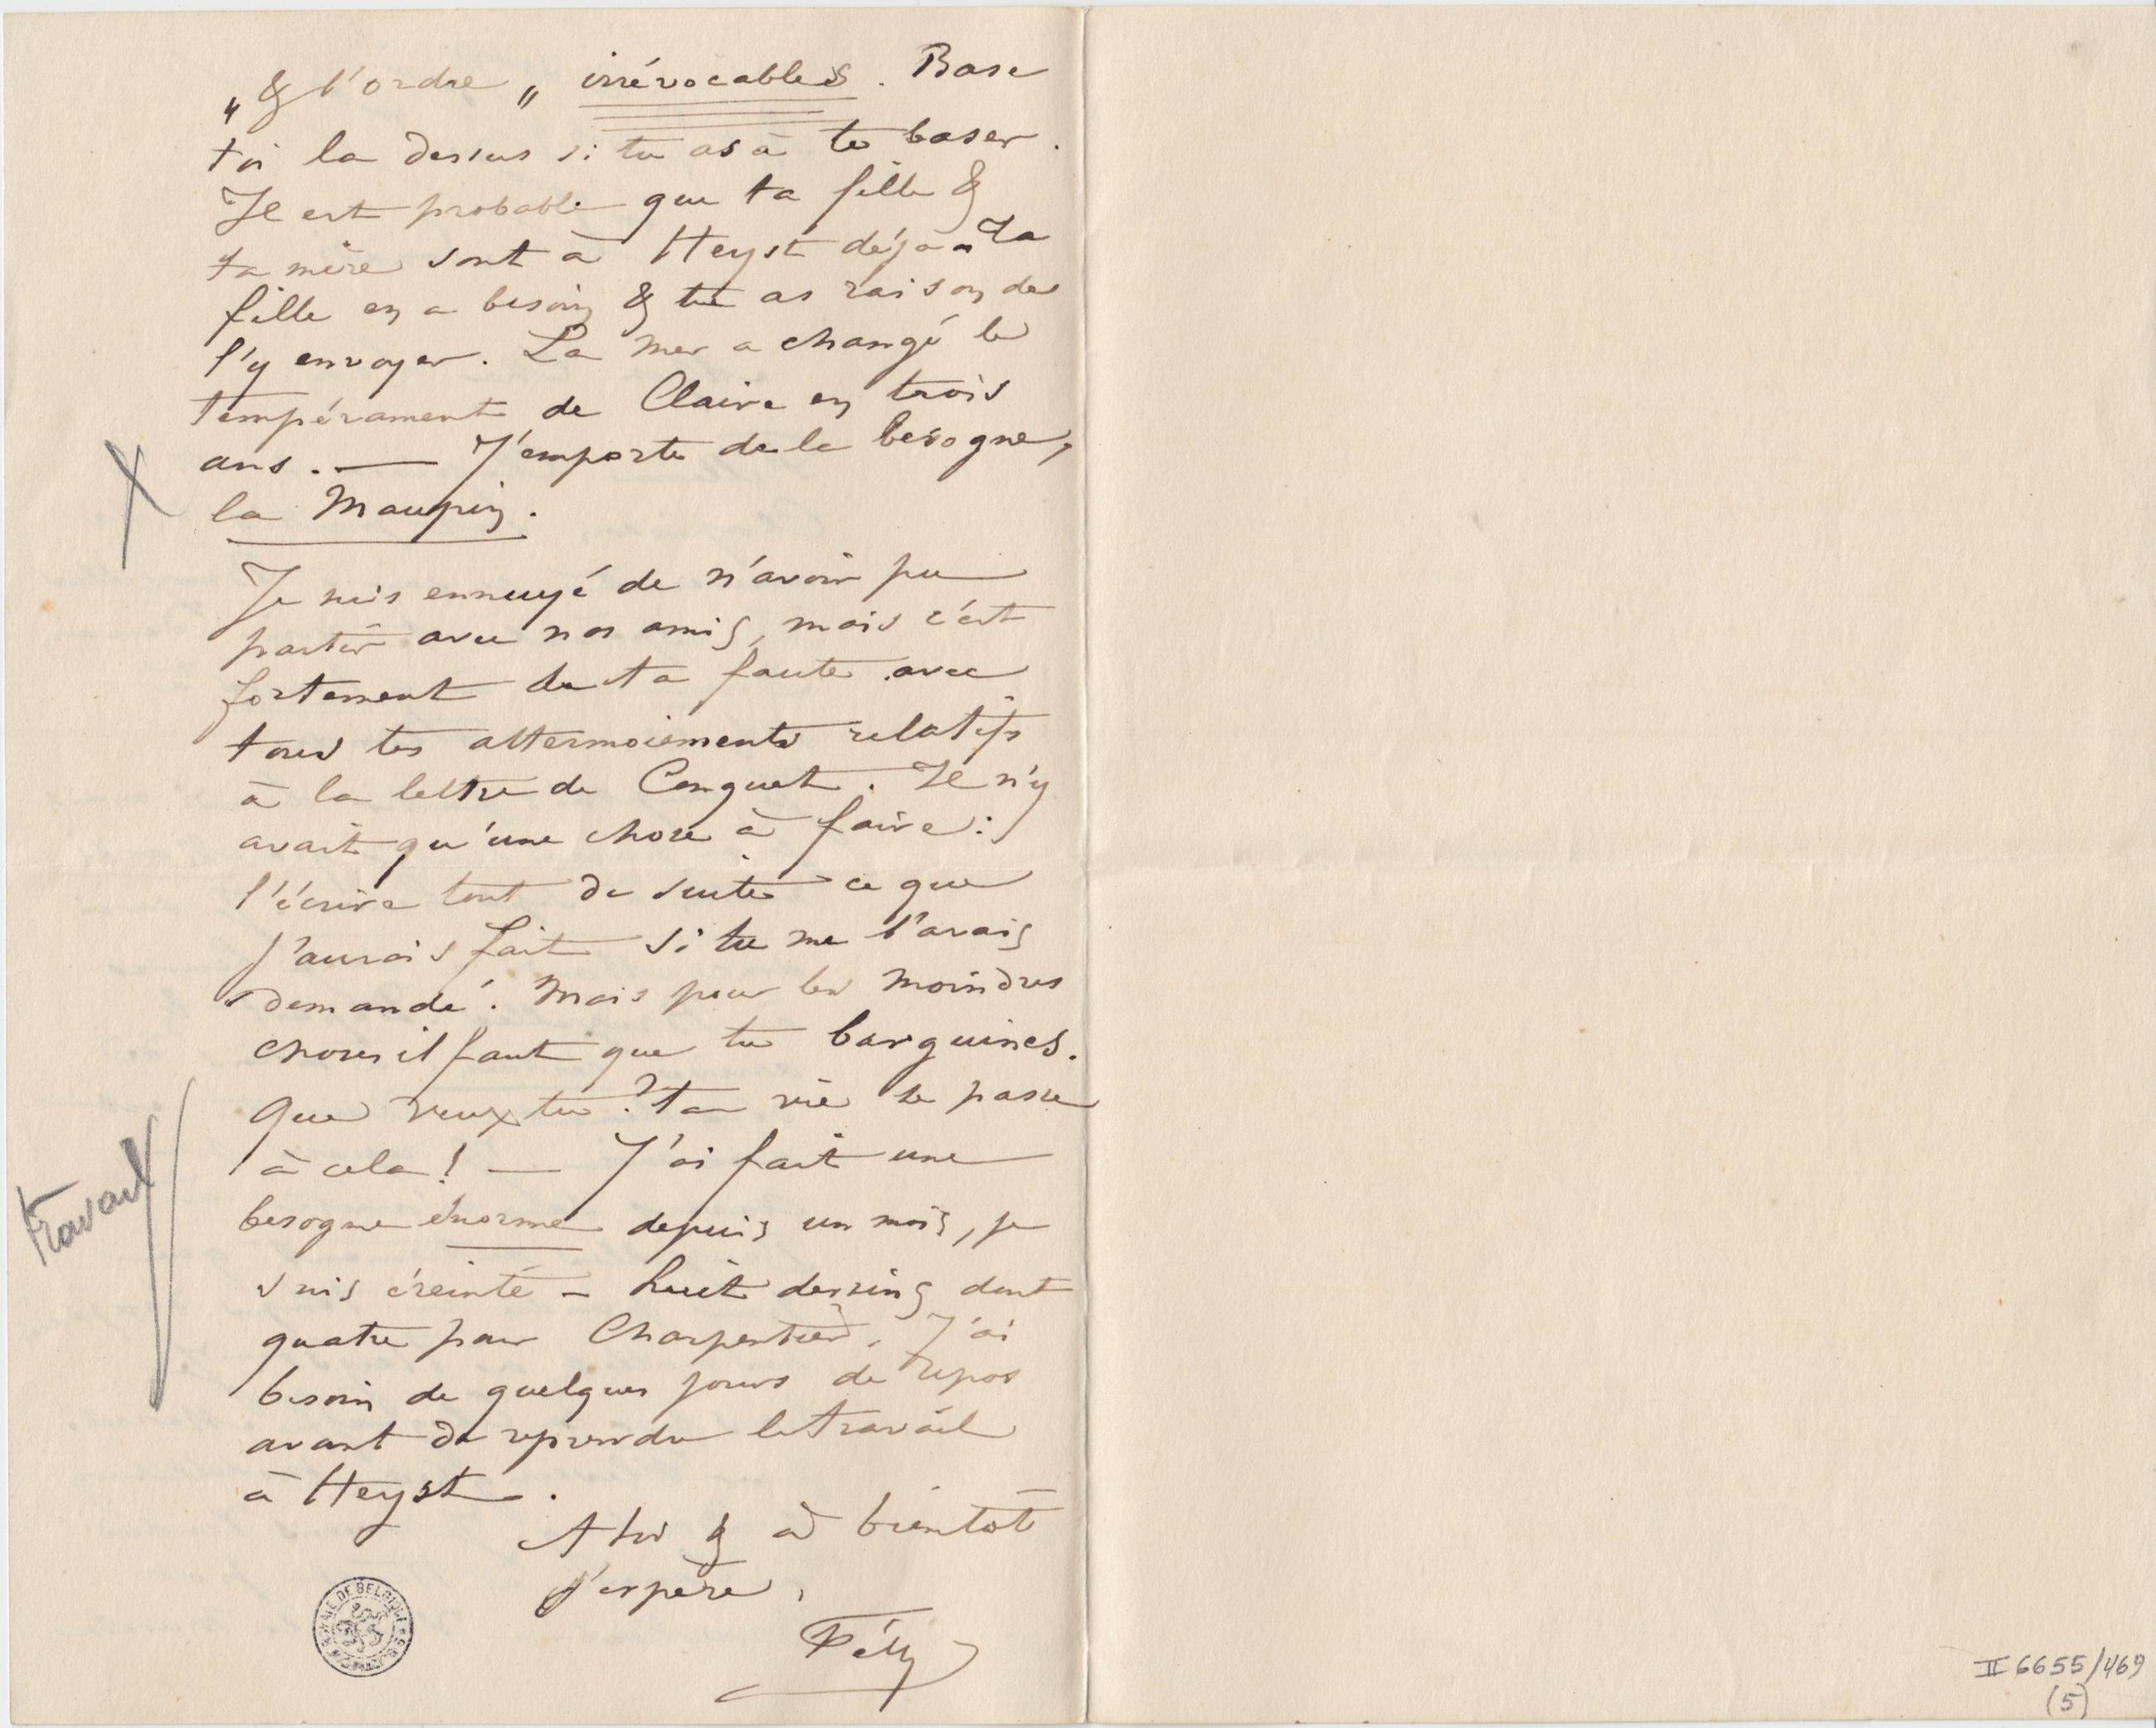 „ & l'ordre „ irrévocables. Base
toi la dessus si tu as à te baser.
Il est probable que ta fille &
ta mère sont à Heyst déjà. Ta
fille en a besoin & tu as raison de
l'y envoyer. La mer a changé le
tempérament de Claire en trois
ans. — J'emporte de la besogne,
la Maupin.
Je suis ennuyé de n'avoir pu
partir avec nos amis, mais c'est
fortement de ta faute avec
tous tes attermoiements relatifs
à la lettre de Conquet. Il n'y
avait qu'une chose à faire:
l'écrire tout de suite ce que
j'aurais fait si tu me l'avais
demandé. Mais pour les moindres
choses il faut que tu barguines.
Que veux tu? ta vie se passe
à cela! — J'ai fait une
besogne énorme depuis un mois, je
suis éreinté – huit dessins dont
quatre pour Charpentier. J'ai
besoin de quelques jours de repos
avant de reprendre le travail
à Heyst.
A toi & à bientôt
j'espère,
Fély
travail
DE BELGIQUE
II 6655/469
(5)